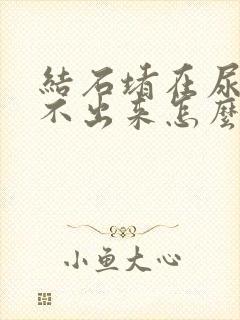 結石堵在尿
不出来怎麼
小鱼大心